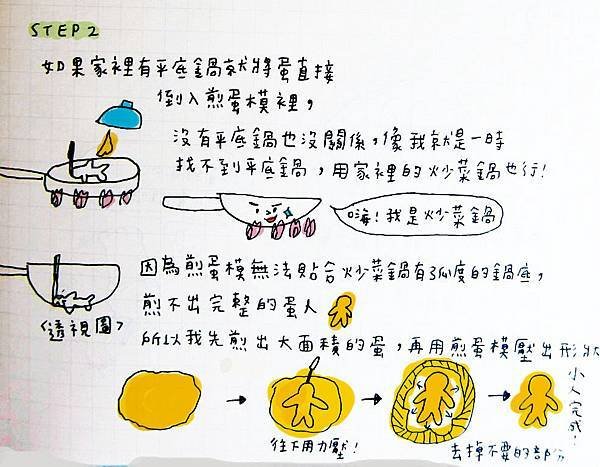 STEP 2
如果家裡有平底鍋就將蛋直接
倒入煎蛋模裡，
沒有平底鍋也沒關係，像我就是一時
找不到平底鍋，用家裡的炒菜鍋也行！
嗨！我是炒菜鍋
因為煎蛋模無法貼合炒菜鍋有弧度的鍋底，
煎不出完整的蛋人
〈透視圖〉
所以我先煎出大面積的蛋，再用煎蛋模壓出形狀
小人完成！
往下用力壓！
去掉不要的部分